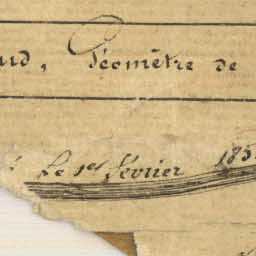 ud, Géomètre de
Le 1er février 185